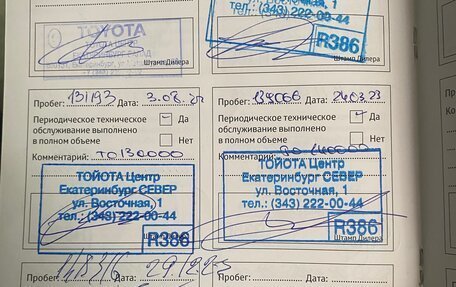 TOYOTA
Штамп Дилера
тел.: (343) 222-00-44
R386
Штамп Дилера
Пробег: 131193 Дата:
Периодическое техническое Да
обслуживание выполнено
в полном объеме Нет
Комментарий: ТО 130000
ТОЙОТА Центр
Екатеринбург СЕВЕР
ул. Восточная, 1
тел.: (343) 222-00-44
R386
Пробег: Дата: 24.03.23
Периодическое техническое Да
обслуживание выполнено
в полном объеме Нет
Комментарий: ТО 140000
ТОЙОТА Центр
Екатеринбург СЕВЕР
ул. Восточная, 1
тел.: (343) 222-00-44
R386
Штамп Дилера
Пробег: Дата:
Пробег: Дата: